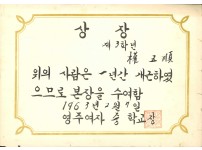 상장
제 3학년
위의 사람은 一년간 새근하였
으므로 본장을 수여함
196 년 2월 9일
영주여자 중 학교장